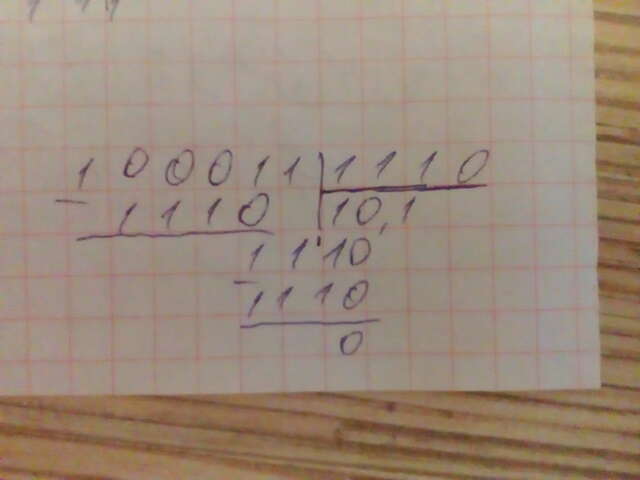 100011 | 1110
- 1110 | 10,1
1110
- 1110
0